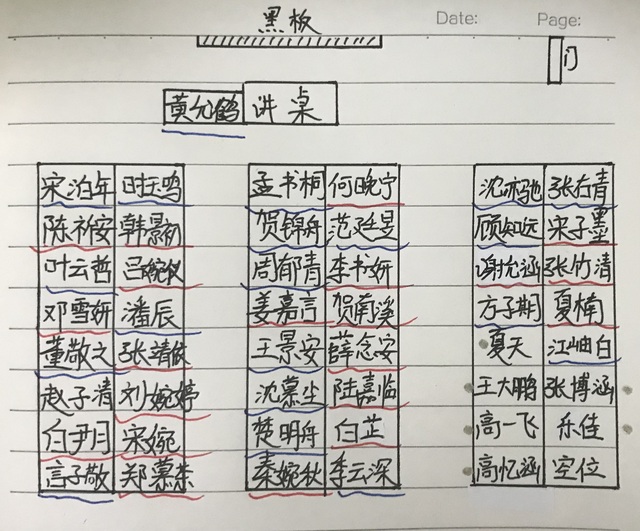 黑板 Date: Page:
门
黄允鹤 讲桌
宋泊年 时玉鸣 孟书桐 何晚宁 沈亦驰 张右青
陈祈安 韩景初 贺锦舟 范廷昱 顾知远 宋子墨
叶云哲 吕婉仪 周郁青 李书妍 谢允涵 张竹清
邓雪妍 潘辰 姜嘉言 贺南溪 方子期 夏楠
董敬之 张靖依 王景安 薛念安 夏天 江岫白
赵子清 刘婉婷 沈慕尘 陆嘉临 王大鹏 张博涵
白尹月 宋婉 楚明舟 白芷 高一飞 乐佳
言子敬 郑慕柒 秦婉秋 季云深 高忆涵 空位